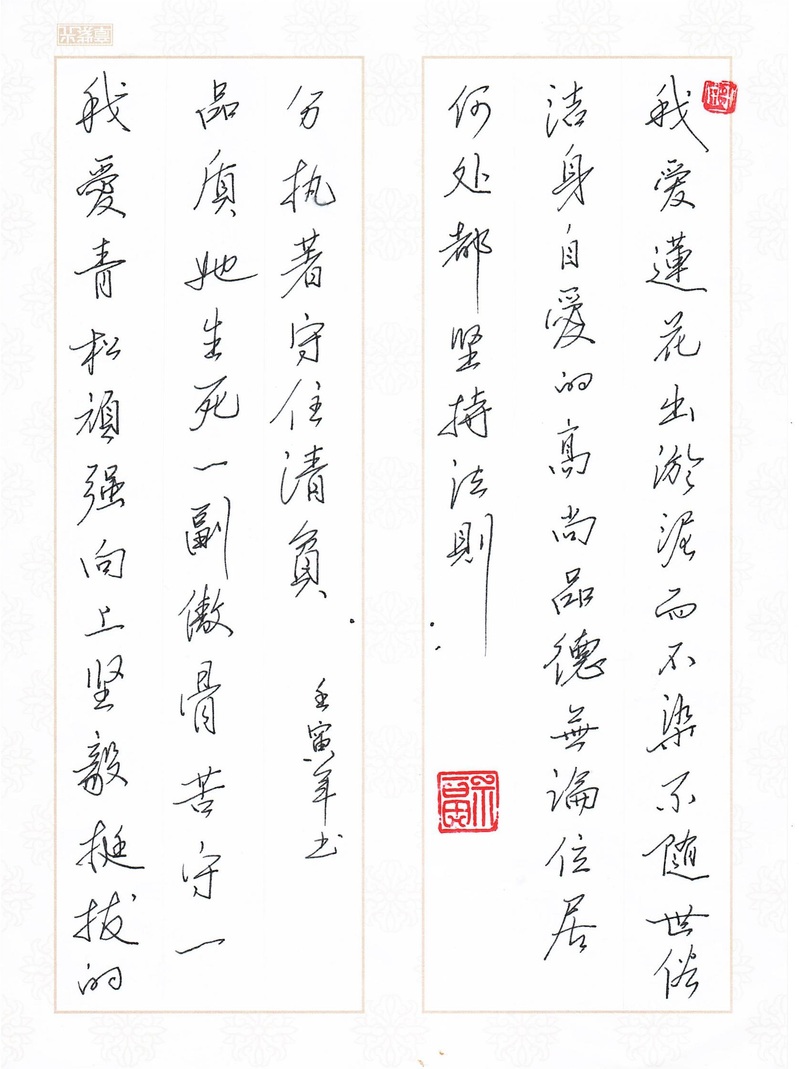 我爱蓮花出淤泥而不染不随世俗
洁身自愛的高尚品德無論位居
何处都坚持法則
我愛青松頑强向上坚毅挺拔的
品質她生死一副傲骨苦守一
分执著守住清貧
壬寅年书